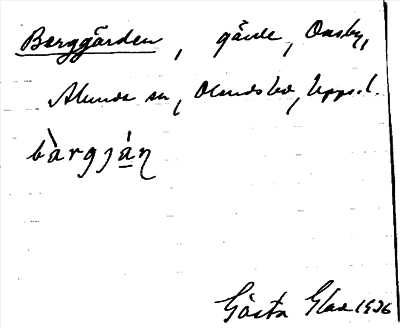 Berggården, gårde, Onsby,
Alunda sn, Olands hd, Upps. l.
bàrgjáη
Gösta Glad 1936